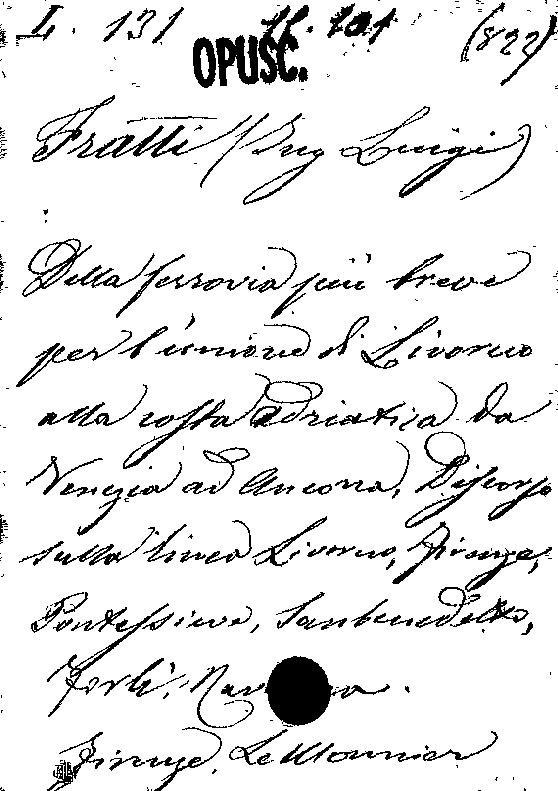 I. 131 (822)
OPUSC.
Fratti (Ing Luigi)
Della ferrovia più breve
per l'unione di Livorno
alla costa adriatica da
Venezia ad Ancona, Discorso
sulla linea Livorno, Firenze,
Pontassieve, Sanbenedetto,
Forlì,
Firenze, Le Monnier